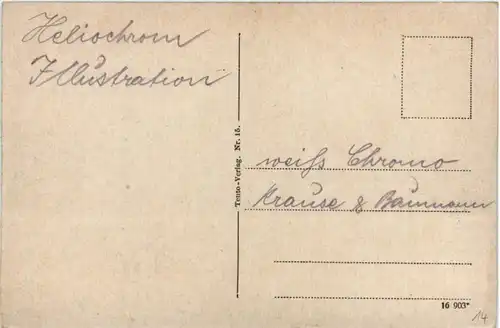 Heliochrom
Illustration
Trato-Verlag. Nr. 15.
weiss Chromo
Krause & Baumann
16 903*
14